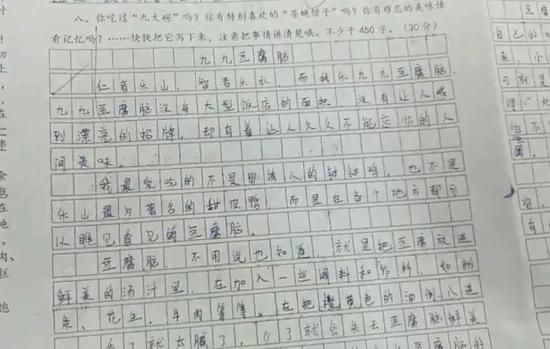 八、你吃过“九大碗”吗？你有特别喜欢的“苍蝇馆子”吗？你有难忘的美味佳
肴记忆吗？……快快把它写下来，注意把事情讲清楚哦。不少于450字。（30分）
九九豆腐脑
仁者乐山，智者乐水，而我乐九九豆腐脑。
九九豆腐脑没有大型饭店的面积，没有让人感
到漂亮的招牌，却有着让人久久不能忘怀的人
间美味。
我最爱吃的不是那诱人的钵钵鸡，也不是
乐山最为著名的甜皮鸭，而是在各个地方都可
以随见看见的豆腐脑。
豆腐脑，不用说也知道，就是把豆腐放进
鲜美的汤汁里，在加入一些调料和作料，如粉
条、花生、牛肉等等。在把橙黄色的油倒入进
了就太腻了，少了就会失去豆腐脑鲜美